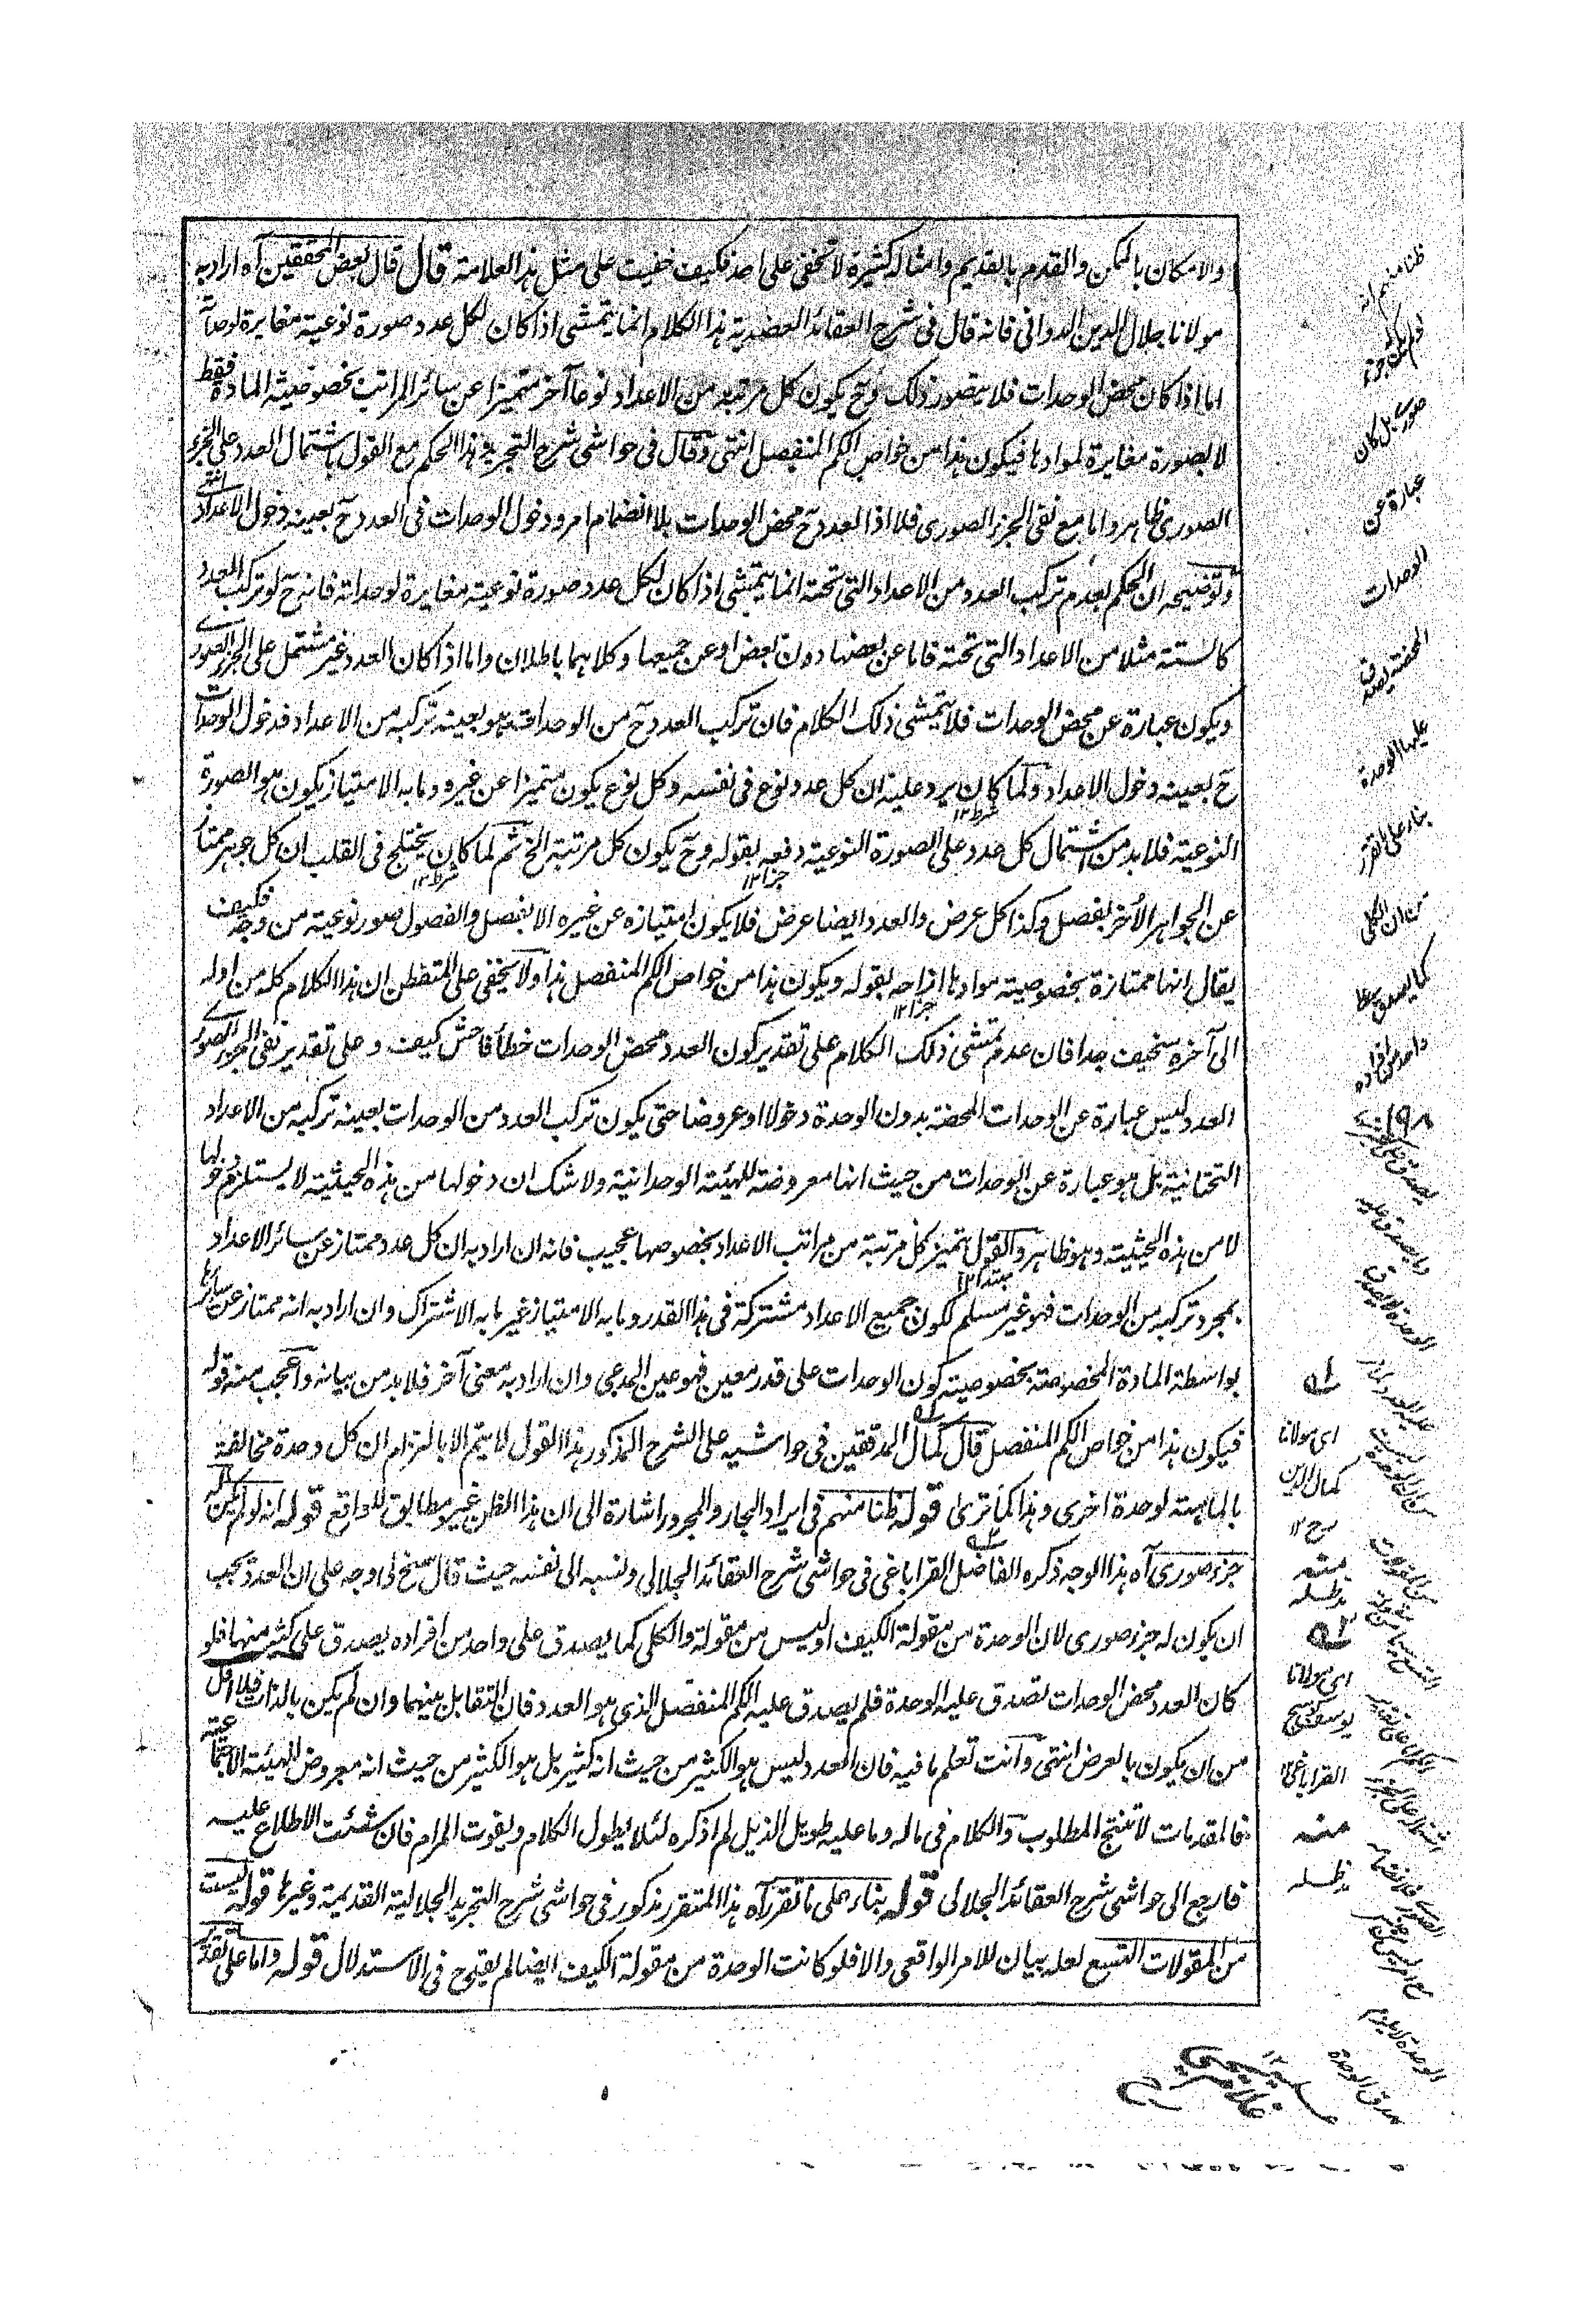 والامكان بالممكن والقدم بالقديم وامثاله كثيرة لا تخفى على احد فكيف خفيت على مثل هذا العلامة قال قال بعض المحققين آه اراد به
مولانا جلال الدين الدوانى فانه قال فى شرح العقائد العضدية هذا الكلام انما يتمشى اذا كان لكل عدد صورة نوعية مغايرة لوحداته
اما اذا كان محض الوحدات فلا يتصور ذلك وح يكون كل مرتبة من الاعداد نوعا آخر متميزا عن سائر المراتب بخصوصية المادة فقط
لا بصورة مغايرة لموادها فيكون هذا من خواص الكم المنفصل انتهى وقال فى حواشى شرح التجريد هذا الحكم مع القول باشتمال العدد على الجزء
الصورى ظاهر واما مع نفى الجزء الصورى فلا اذ العدد ح محض الوحدات بلا انضمام امر ودخول الوحدات فى العدد ح بعينه دخول الاعداد انتهى
وتوضيحه ان الحكم بعدم تركب العدد من الاعداد التى تحته انما يتمشى اذا كان لكل عدد صورة نوعية مغايرة لوحداته فانه ح لو تركب العدد
كالستة مثلا من الاعداد التى تحته فاما عن بعضها دون بعض او عن جميعها وكلاهما باطلان واما اذا كان العدد غير مشتمل على الجزء الصورى
ويكون عبارة عن محض الوحدات فلا يتمشى ذلك الكلام فان تركب العدد ح من الوحدات هو بعينه تركبه من الاعداد فدخول الوحدات
ح بعينه دخول الاعداد ولما كان يرد عليه ان كل عدد نوع فى نفسه وكل نوع يكون متميزا عن غيره وما به الامتياز يكون هو الصورة
النوعية فلا بد من اشتمال كل عدد على الصورة النوعية دفعه بقوله وح يكون كل مرتبة الخ ثم لما كان يختلج فى القلب ان كل جوهر ممتاز
عن الجواهر الأخر بفصل وكذا كل عرض والعدد ايضا عرض فلا يكون امتيازه عن غيره الا بفصل والفصول صور نوعية من وجه فكيف
يقال انها ممتازة بخصوصية موادها ازاحه بقوله ويكون هذا من خواص الكم المنفصل هذا ولا يخفى على المتفطن ان هذا الكلام كله من اوله
الى آخره سخيف جدا فان عدم تمشى ذلك الكلام على تقدير كون العدد محض الوحدات خطأ فاحش كيف وعلى تقدير نفى الجزء الصورى
العدد ليس عبارة عن الوحدات المحضة بدون الوحدة دخولا او عروضا حتى يكون تركب العدد من الوحدات بعينه تركبه من الاعداد
التحتانية بل هو عبارة عن الوحدات من حيث انها معروضة للهيئة الوحدانية ولا شك ان دخولها من هذه الحيثية لا يستلزم دخولها
لا من هذه الحيثية وهو ظاهر والقول بتميز كل مرتبة من مراتب الاعداد بخصوصها عجيب فانه ان اراد به ان كل عدد ممتاز عن سائر الاعداد
بمجرد تركبه من الوحدات فهو غير مسلم لكون جميع الاعداد مشتركة فى هذا القدر وما به الامتياز غير ما به الاشتراك وان اراد به انه ممتاز عن سائرها
بواسطة المادة المخصوصة بخصوصية كون الوحدات على قدر معين فهو عين المدعى وان اراد به معنى آخر فلا بد من بيانه واعجب منه قوله
فيكون هذا من خواص الكم المنفصل قال كمال المدققين فى حواشيه على الشرح المذكور هذا القول لا يتم الا بالتزام ان كل وحدة مخالفة
بالماهية لوحدة اخرى وهذا كما ترى قوله ظنا منهم فى ايراد الجار والمجرور اشارة الى ان هذا الظن غير مطابق للواقع قوله انه لو لم يكن له
جزء صورى آه هذا الوجه ذكره الفاضل القراباغى فى حواشى شرح العقائد الجلالى ونسبه الى نفسه حيث قال سنح لى وجه على ان العدد يجب
ان يكون له جزء صورى لان الوحدة من مقولة الكيف او ليس من مقولة والكلى كما يصدق على واحد من افراده يصدق على كثير منها فلو
كان العدد محض الوحدات تصدق عليه الوحدة فلم يصدق عليه الكم المنفصل الذى هو العدد فان التقابل بينهما وان لم يكن بالذات فلا اقل
من ان يكون بالعرض انتهى وانت تعلم ما فيه فان العدد ليس هو الكثير من حيث انه كثير بل هو الكثير من حيث انه معروض للهيئة الاجتماعية
فالمقدمات لا تنتج المطلوب والكلام فى ماله وما عليه طويل الذيل لم اذكره لئلا يطول الكلام ويفوت المرام فان شئت الاطلاع عليه
فارجع الى حواشى شرح العقائد الجلالى قوله بناء على ما تقرر آه هذا المتقرر مذكور فى حواشى شرح التجريد الجلالية القديمة وغيرها قوله ليست
من المقولات التسع لعله بيان للامر الواقعى والا فلو كانت الوحدة من مقولة الكيف ايضا لم يقدح فى الاستدلال قوله واما على تقدير
ظنا منهم انه
لو لم يكن جزء
صورى بل كان
عبارة عن
الوحدات
المحضة يصدق
عليها الوحدة
بناء على ما تقرر
من ان الكلى
كما يصدق على
واحد من افراده
اى مولانا
كمال الدين
رح ١٢
منه
مد ظله
اى مولانا
يوسف كوسج
القراباغى ١٢
منه
مد ظله